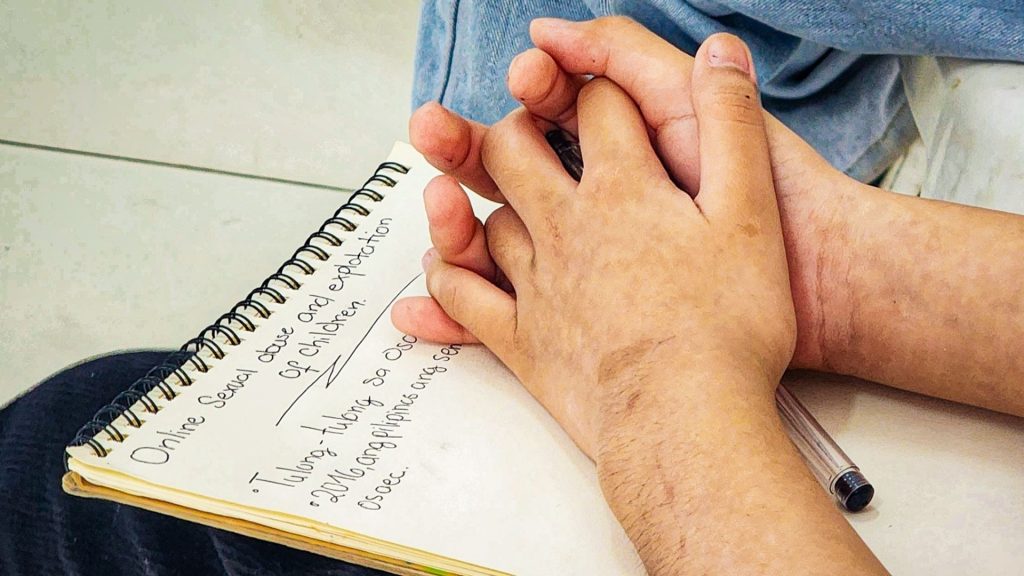 Online Sexual abuse and expotation
of children.
• Tulong-tulong sa
• 2016, ang pilipinas ang
osaec.